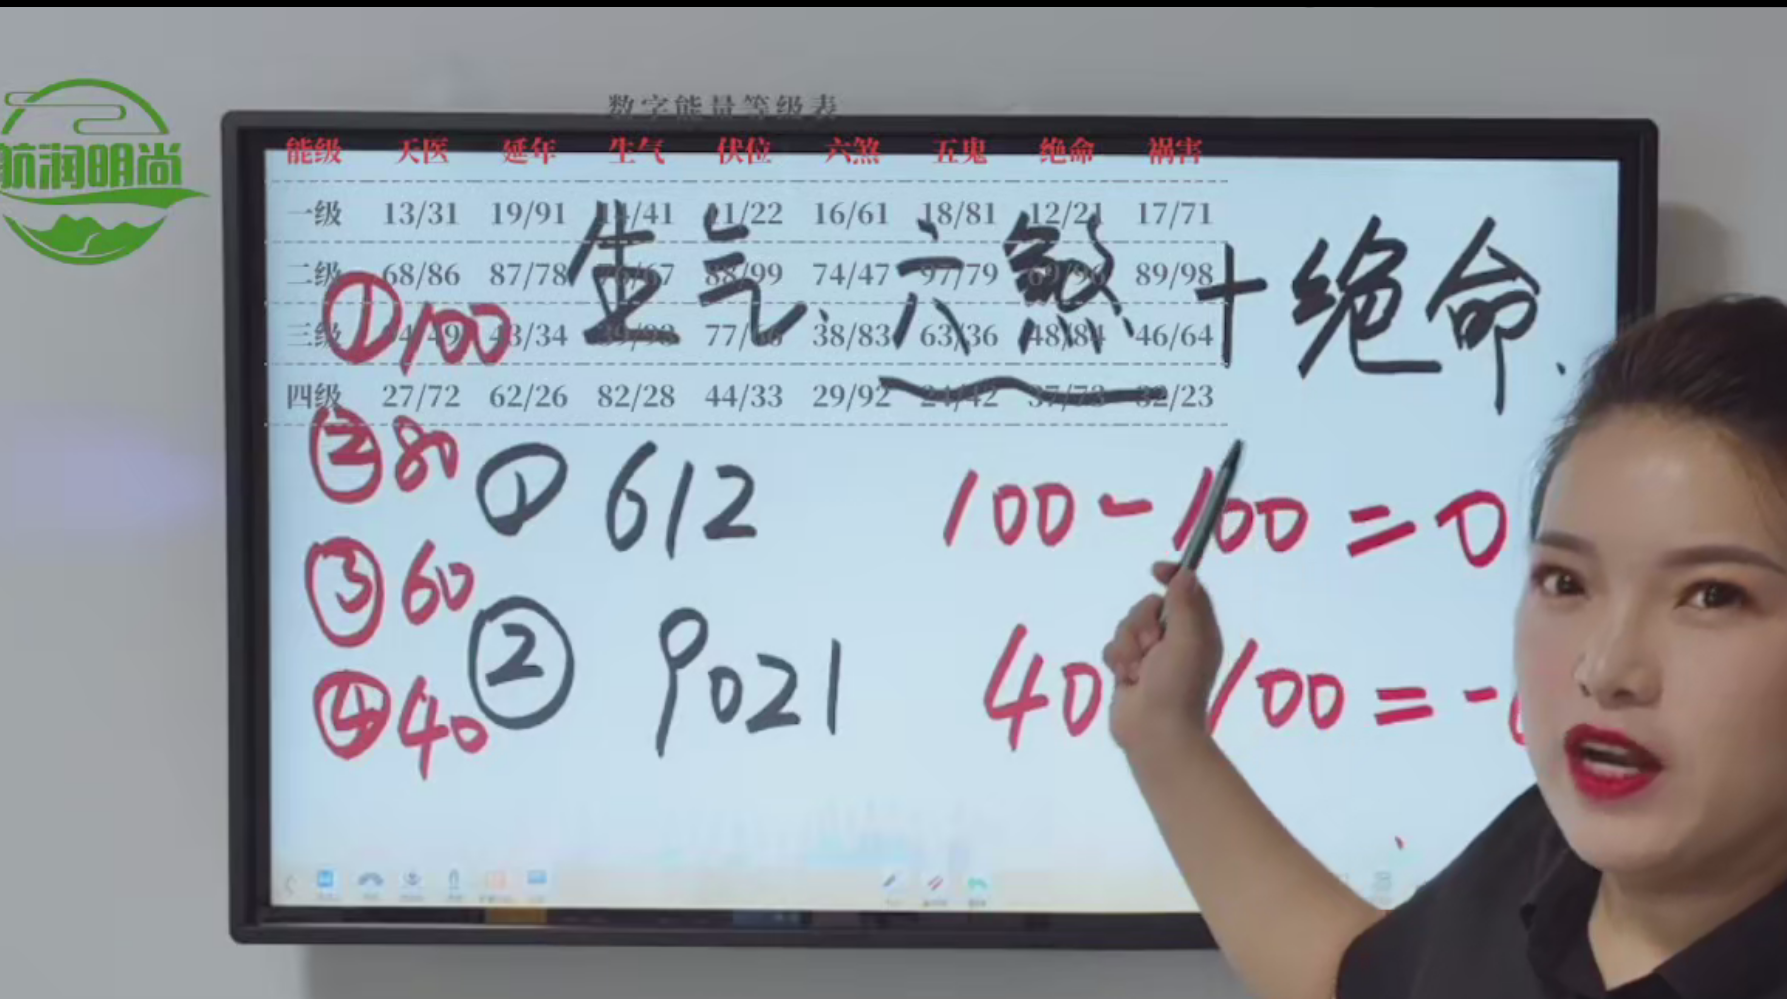 数字能量等级表
航润明尚
能级 天医 延年 生气 伏位 六煞 五鬼 绝命 祸害
一级 13/31 19/91 14/41 11/22 16/61 18/81 12/21 17/71
二级 68/86 87/78 76/67 88/99 74/47 97/79 69/96 89/98
三级 94/49 43/34 39/93 77/66 38/83 63/36 48/84 46/64
四级 27/72 62/26 82/28 44/33 29/92 24/42 37/73 32/23
生气、六煞+绝命.
①100
②80
① 612 100-100=0
③60
② 9021 40 100=-
④40